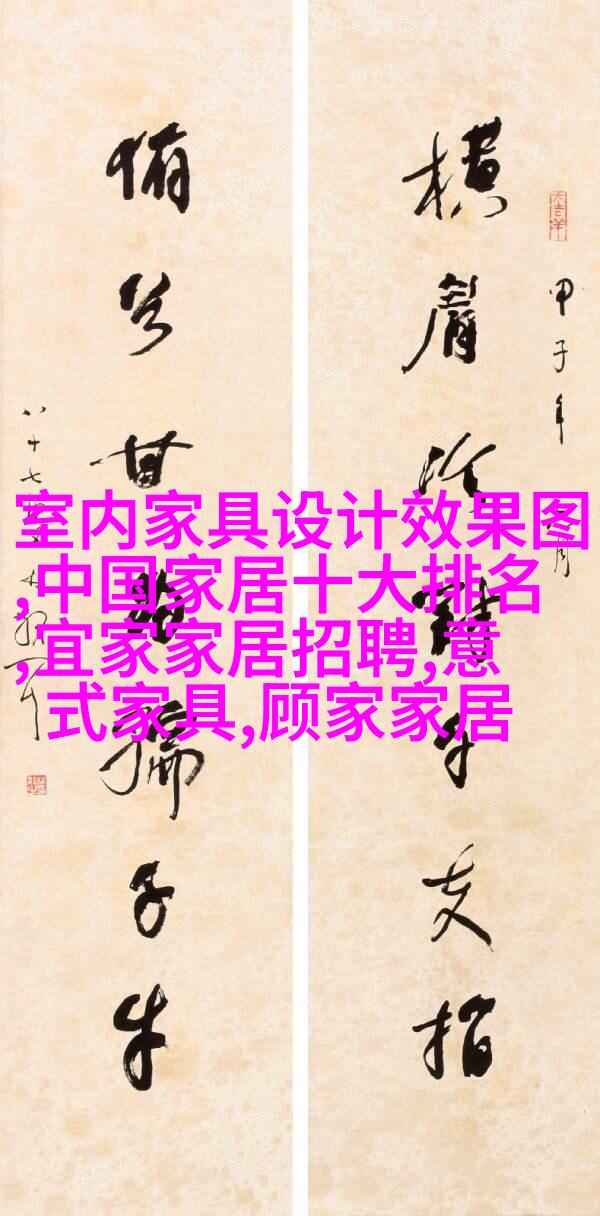 大吉羊
甲子年
橫眉冷對千夫指
俯首甘為孺子牛
八十七叟林散耳
室内家具设计效果图
,中国家居十大排名
,宜家家居招聘,意
式家具,顾家家居